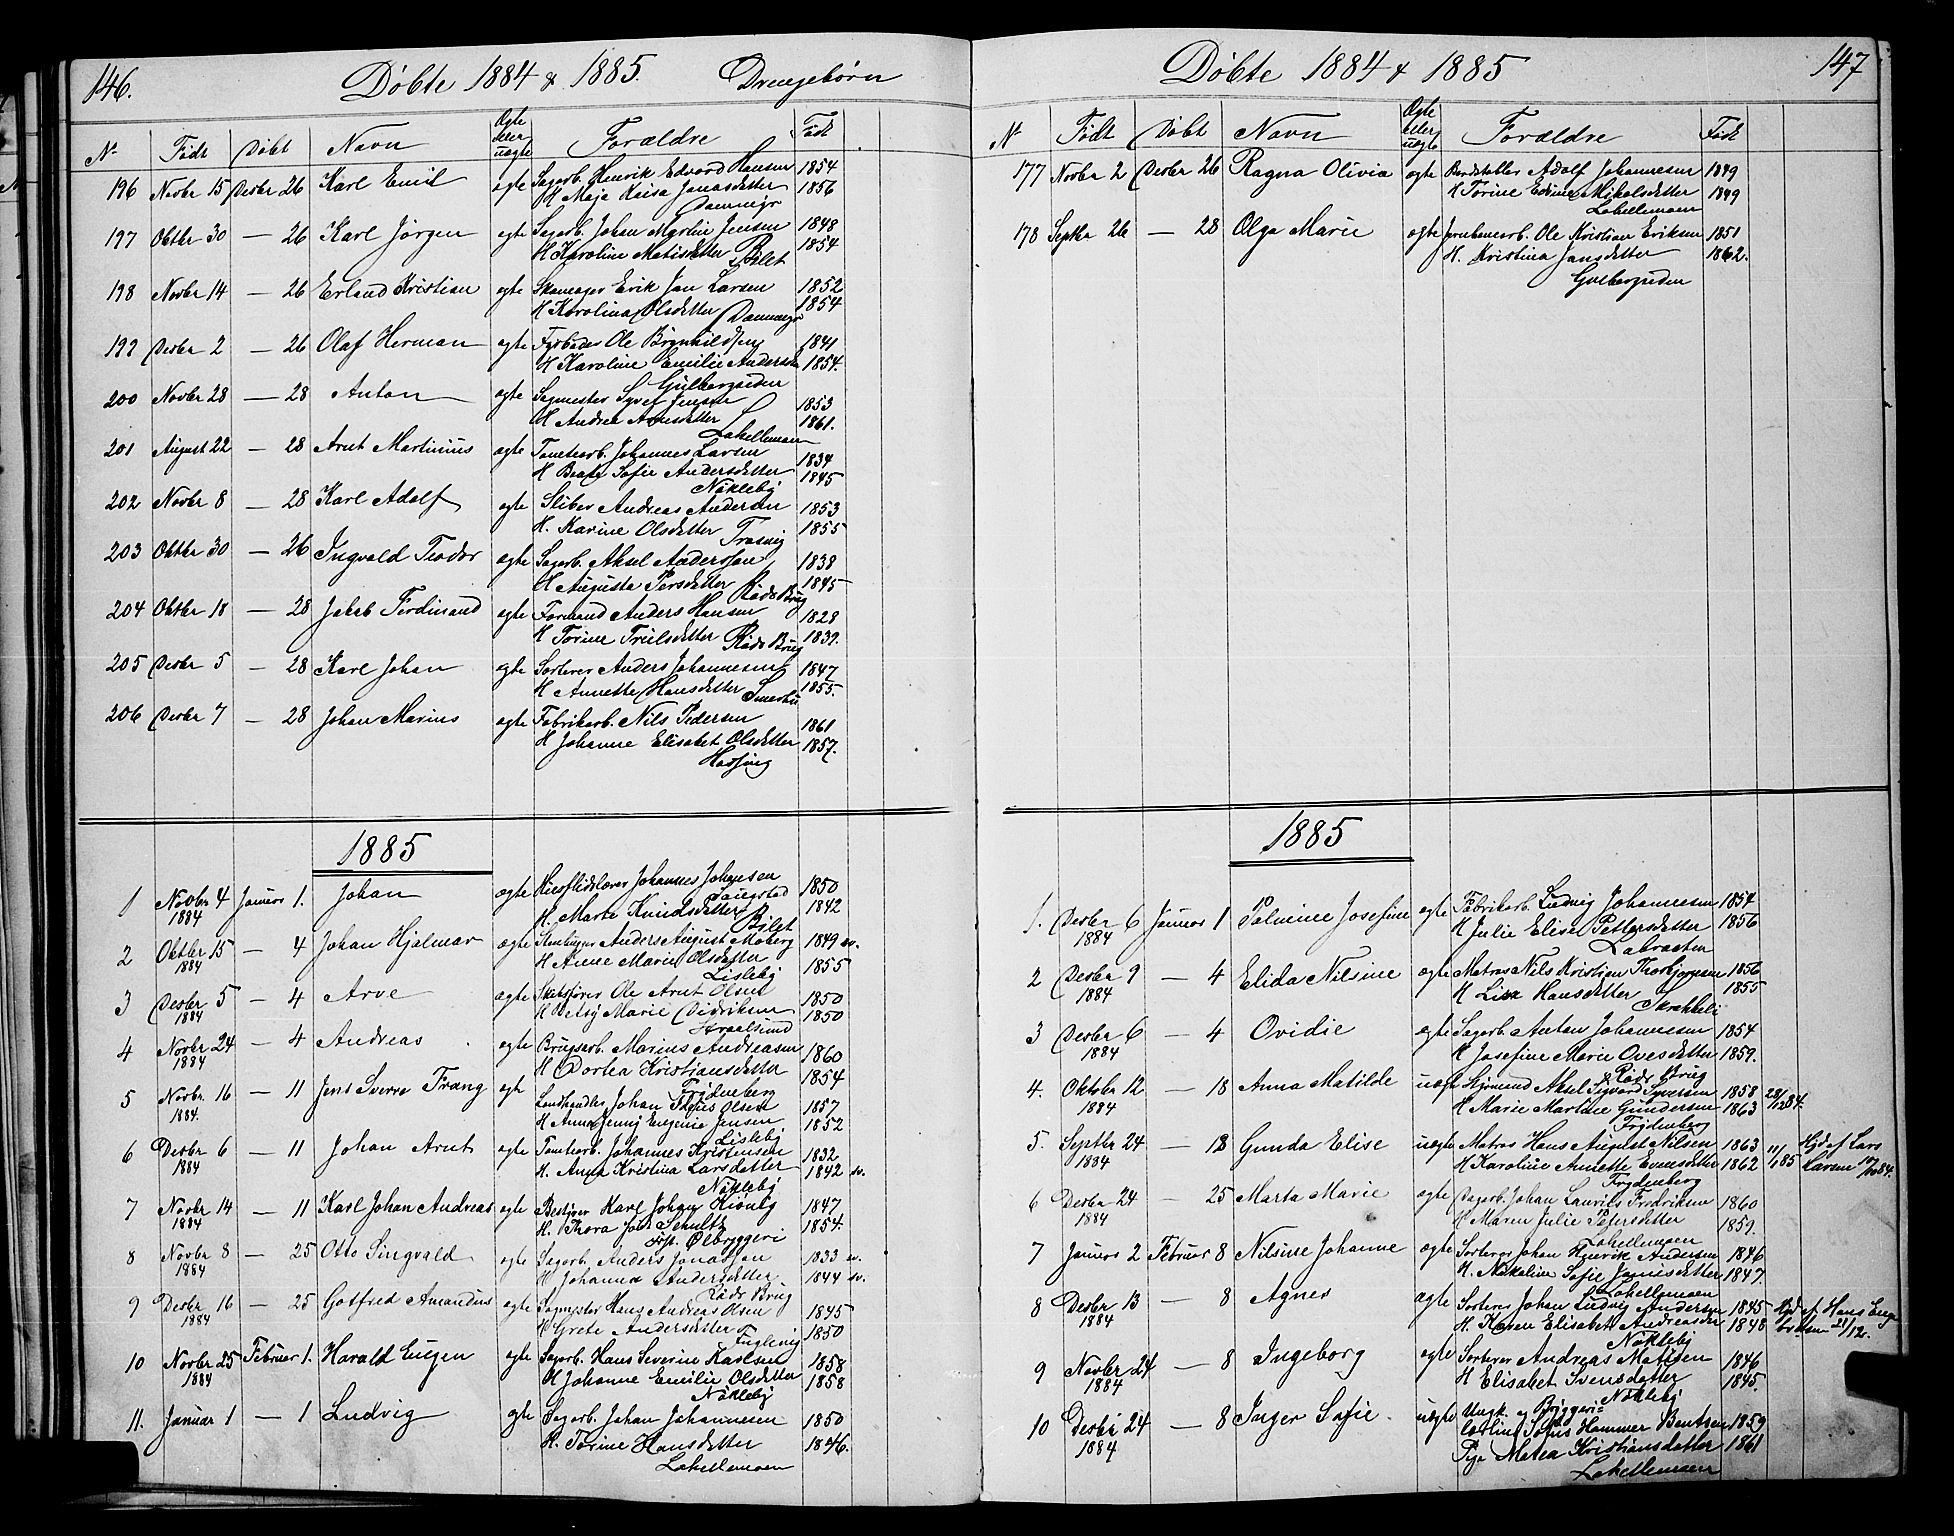 146.
Döbte 1884 & 1885. Drengebörn
No Födt Döbt Navn Ægte eller uægte Forældre Födt
196 Novbr 15 Desbr 26 Karl Emil ægte Sagarb. Henrik Edvard Hansen 1854
H Maja Kaisa Jonasdatter 1856
Dammyr
197 Oktbr 30 — 26 Karl Jörgen ægte Sagarb. Johan Martin Jensen 1848
H Karoline Matisdatter Bilet 1854
198 Novbr 14 — 26 Erland Kristian ægte Skomager Erik Jan Larsen 1852
H Karolina Olsdatter Dammyr 1854
199 Desbr 2 — 26 Olaf Herman ægte Fyrböder Ole Brynhildsen 1841
H Karoline Emilie Andersdtr 1854.
Gulbergsiden
200 Novbr 28 — 28 Anton ægte Sagmester Syver Jensen 1853
H Andrea Arnesdatter 1861.
Lahellemoen
201 August 22 — 28 Arnt Martinius ægte Tomtearb. Johannes Larsen 1834
H Beate Sofie Andersdatter 1845
Nökleby
202 Novbr 8 — 28 Karl Adolf ægte Sliber Andreas Andersen 1853
H. Karine Olsdatter Trosvig 1855
203 Oktbr 30 — 26 Ingvald Teodor ægte Sagarb. Aksel Andersson 1838
H Augusta Persdatter Röds Brug 1845
204 Oktbr 18 — 28 Jakob Ferdinand ægte Formand Anders Hansen 1828
H Torine Trulsdatter Röds Brug 1839.
205 Desbr 5 — 28 Karl Johan ægte Sorterer Anders Johannesen 1847
H Annette Hansdatter Smertu 1855.
206 Desbr 7 — 28 Johan Marius ægte Fabrikarb. Nils Pedersen 1861
H Johanne Elisabet Olsdatter 1857.
Hassing
1885
1 Novbr 4 Januar 1. Johan ægte Johannes Johnsen 1850
1884 H. Marte Knudsdatter Bilet 1842
2 Oktbr 15 — 4 Johan Hjalmar ægte Stenhugger Anders August Moberg 1849 sv.
1884 H Anne Marie Olsdatter 1855
Lisleby
3 Desbr 5 — 4 Arve ægte Ole Arnt Olsen 1850
1884 H Betsy Marie Didriksen 1850
4 Novbr 24 — 4 Andreas ægte Brugsarb. Marius Andreasen 1860
1884 H Dortea Kristiansdatter 1854
Frydenberg
5 Novbr. 16 — 11 Jens Sverre Frang ægte Landhandler Johan Olsen 1857
1884. H Anna Jenny Eugenie Jensen 1852
Lisleby
6 Desbr 6 — 11 Johan Arnt ægte Tomtearb. Johannes Kristensen 1832
1884 H. Anna Kristina Larsdatter 1842 sv.
Nökleby
7 Novbr 14 — 11 Karl Johan Andreas ægte Bestyrer Karl Johan Kiönig 1847
1884 H. Thora Schultz 1854
Ølbryggeri
8 Novbr 8 — 25 Otto Singvald ægte Sagarb. Anders Jonassen 1833 sv.
1884 H Johanna Andersdatter 1844 sv.
Röds Brug
9 Desbr 16 — 25 Gotfred Amandus ægte Sagmester Hans Andreas Olsen 1845
1884 H Grete Andersdatter 1850
Fuglevig
10 Novbr 25 Februar 1. Harald Eugen ægte Sagarb. Hans Severin Karlsen 1858
1884 H Johanne Emilie Olsdatter 1858
Nökleby
11. Januar 1 — 1 Ludvig ægte Sagarb. Johan Johannesen 1850
H. Torine Hansdatter 1846.
Lahellemoen
147
Döbte 1884 & 1885
No Födt Döbt Navn Ægte eller uægte Forældre Födt
177 Novbr 2 Desbr 26 Ragna Olivia ægte Bordstabler Adolf Johannesen 1849
H Torine Edine Mikalsdatter 1849
Lahellemoen
178 Septbr 26 — 28 Olga Marie ægte Jernbanearb. Ole Kristian Eriksen 1851
H. Kristina Jansdatter 1862.
Gulbergsiden
1885
1. Desbr 6 Januar 1 Palmine Josefine ægte Fabrikarb. Ludvig Johannesen 1854
1884 H Julie Elise Pettersdatter 1856
Labraaten
2 Desbr 9 — 4 Elida Nilsine ægte Matros Nils Kristian Thorbjörnsen 1856
1884 H Lise Hansdatter 1855
3 Desbr 6 — 4 Ovidie ægte Sagarb. Anton Johannesen 1854
1884 H Josefine Marie Ovesdatter 1859.
Röds Brug
4. Oktober 12 — 18 Anna Matilde uægte Styrmand Aksel Sigvard Syversen 1858 28/12 84.
1884 H Marie Martine Gundersen 1863
Frydenberg
5. Septbr 24 — 18 Gunda Elise uægte Matros Hans August Nilsen 1863 11/1 85 Hjd af Lars
1884 H Karoline Annette Evensdatter 1862 Larsen 84.
Frydenberg
6 Desbr 24 — 25 Marta Marie ægte Dagarb. Johan Laurits Fredriksen 1860
1884 H Maren Julie Petersdatter 1859.
Lahellemoen
7 Januar 2 Februar 8 Nilsine Johanne ægte Sorterer Johan Henrik Andersen 1846
H. Nikoline Sofie Jonisdatter 1847.
Lahellemoen
8 Desbr 13 — 8 Agnes ægte Sorterer Johan Ludvig Andersen 1845 Hjd af Hans
1884 H. Karen Elisabet Andreasdtr 1848 21/12.
Nökleby
9 Novbr 24 — 8 Ingeborg ægte Sorterer Andreas Matisen 1846
1884 H Elisabet Svensdatter 1845.
Nökleby
10 Desbr 24 — 8 Inger Sofie uægte Ungk. Bryggeri-
1884 Hammer Bentsen 1859
Pige Matea Kristiansdatter 1861
Lahellemoen